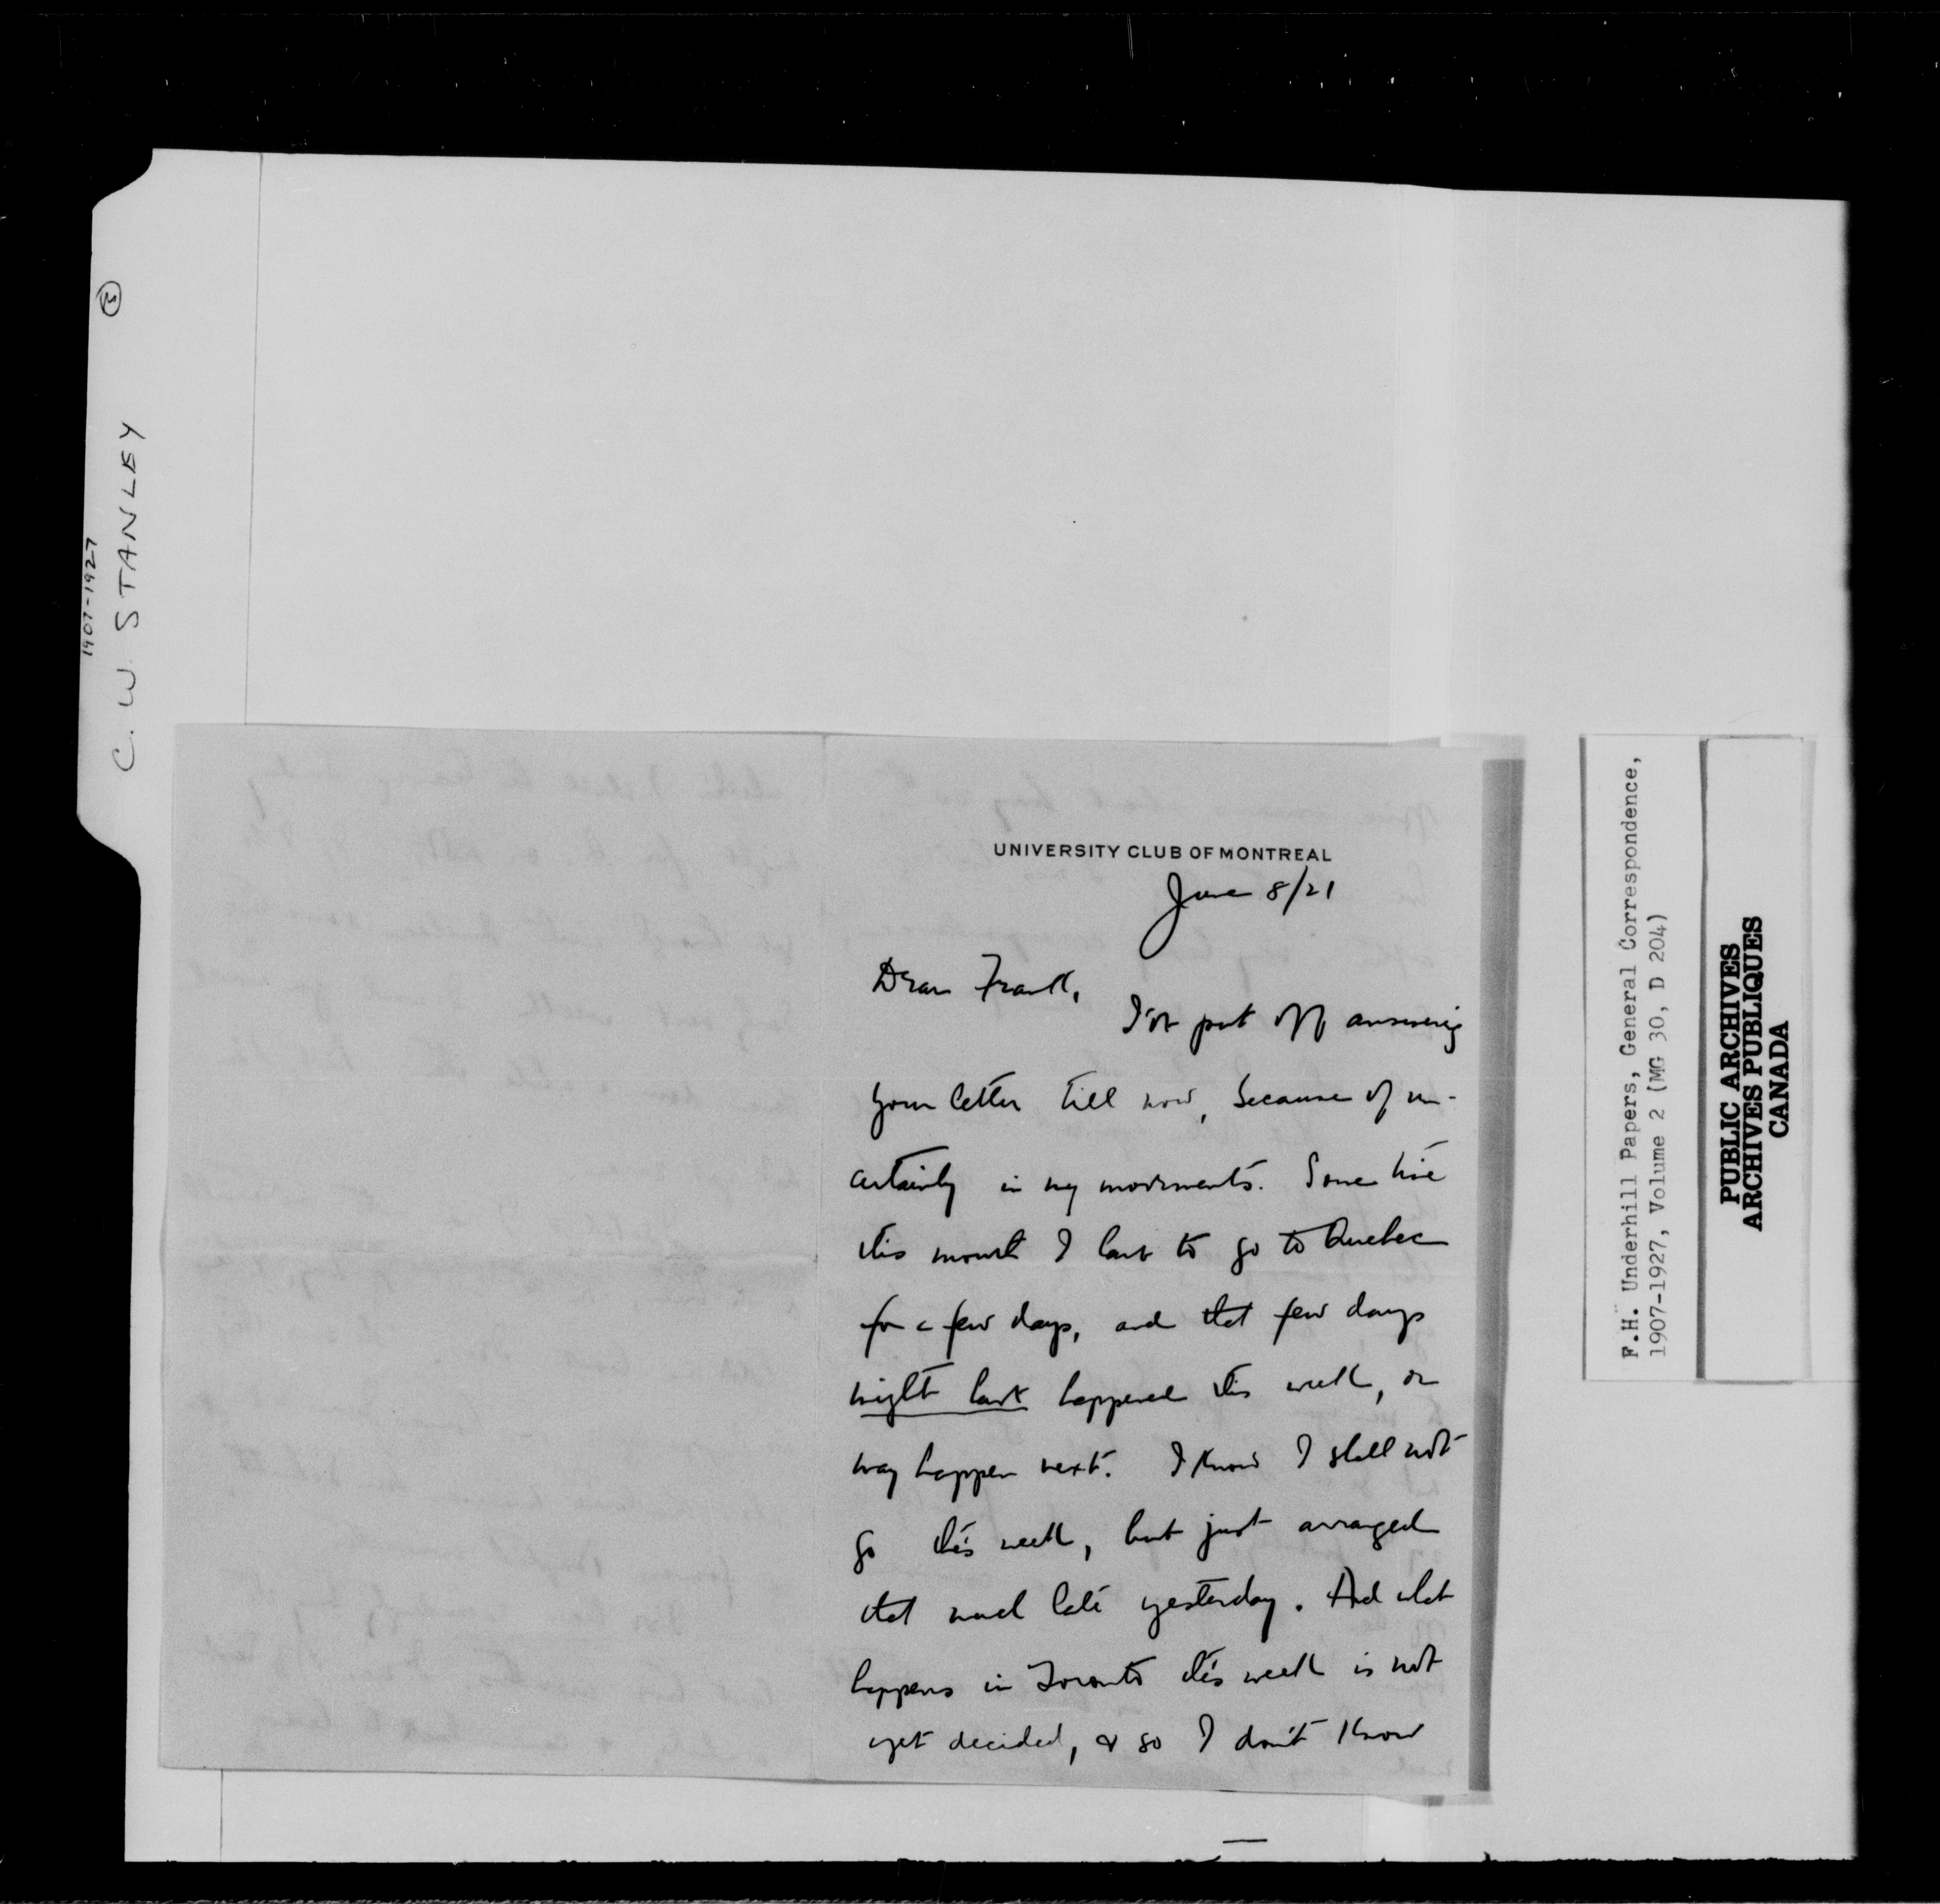 1907-1927
C. W. STANLEY
UNIVERSITY CLUB OF MONTREAL
June 8/21
Dear Frank,
I've put off answering
your letter till now, because of un-
certainty in my movements. Some time
this month I have to go to Quebec
for a few days, and that few days
might have happened this week, or
may happen next. I know I shall not
go this week, but just arranged
that much late yesterday. And what
happens in Toronto this week is not
yet decided, & so I don't know
F.H. Underhill Papers, General Correspondence,
1907-1927, Volume 2 (MG 30, D 204)
PUBLIC ARCHIVES
ARCHIVES PUBLIQUES
CANADA